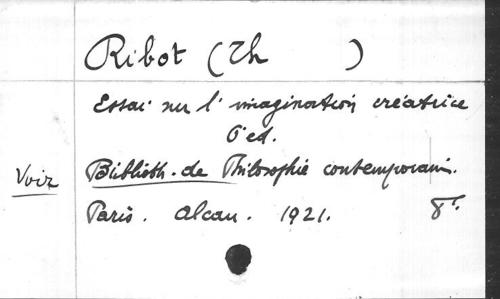 Ribot (Th )
Essai sur l'imagination créatrice
6 ed.
Voir Biblioth. de Philosophie contemporain.
Paris. Alcan. 1921. 8°.